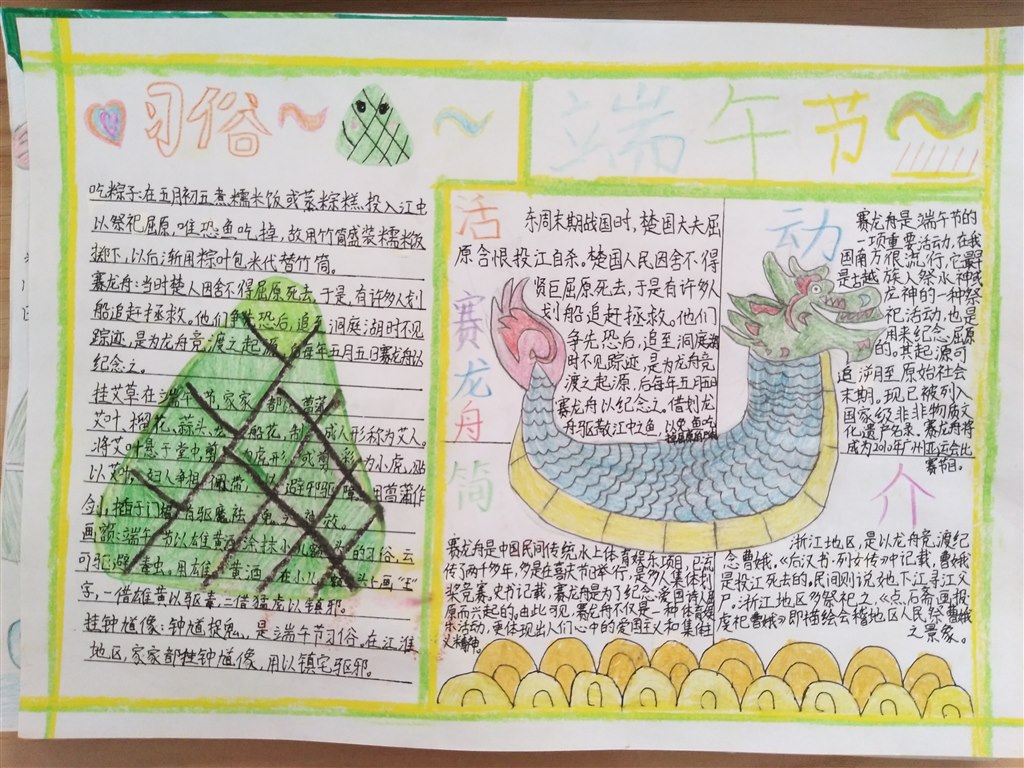 习俗
端午节
吃粽子:在五月初五煮糯米饭或蒸粽糕投入江中
以祭祀屈原,唯恐鱼吃掉,故用竹筒盛装糯米饭
掷下,以后渐用粽叶包米代替竹筒。
赛龙舟:当时楚人因舍不得屈原死去,于是,有许多人划
船追赶拯救。他们争先恐后,追至洞庭湖时不见
踪迹,是为龙舟竞渡之起源,后每年五月五日赛龙舟以
纪念之。
挂艾草在端午节,家家都以菖蒲、
艾叶、榴花、蒜头、龙船花,制成人形称为艾人。
将艾叶悬于堂中,剪为虎形或剪彩为小虎,贴
以艾叶,妇人争相佩戴,以避邪驱瘴。用菖蒲作
剑,插于门楣,有驱魔祛鬼之神效。
画额:端午节以雄黄涂抹小儿额头的习俗,云
可驱避毒虫,用雄黄酒在小儿额头上画"王"
字,一借雄黄以驱毒,二借猛虎以镇邪。
挂钟馗像:钟馗捉鬼,是端午节习俗。在江淮
地区,家家都挂钟馗像,用以镇宅驱邪。
活动
赛龙舟
简介
东周末期战国时,楚国大夫屈
原含恨投江自杀。楚国人民因舍不得
贤臣屈原死去,于是有许多人
划船追赶拯救。他们
争先恐后,追至洞庭湖
时不见踪迹,是为龙舟竞
渡之起源,后每年五月五日
赛龙舟以纪念之。借划龙
舟驱散江中之鱼,以免鱼吃
赛龙舟是端午节的
一项重要活动,在我
国南方很流行,它最早
是古越族人祭水神或
龙神的一种祭
祀活动,也是
用来纪念屈原
的。其起源可
追溯月至原始社会
末期。现已被列入
国家级非非物质文
化遗产名录。赛龙舟将
成为2010年广州亚运会比
赛节目。
赛龙舟是中国民间传统水上体育娱乐项目,已流
传了两千多年,多是在喜庆节日举行,是多人集体划
桨竞赛。史书记载,赛龙舟是为了纪念爱国诗人屈
原而兴起的。由此可见,赛龙舟不仅是一种体育娱
乐活动,更体现出人们心中的爱国主义和集体
义精神。
浙江地区,是以龙舟竞渡纪
念曹娥,《后汉书·列女传》中记载,曹娥
是投江死去的,民间则说她下江寻江父
尸。浙江地区多祭祀之,《点石斋画报·
虔祀曹娥》即描绘会稽地区人民祭曹娥
之景象。